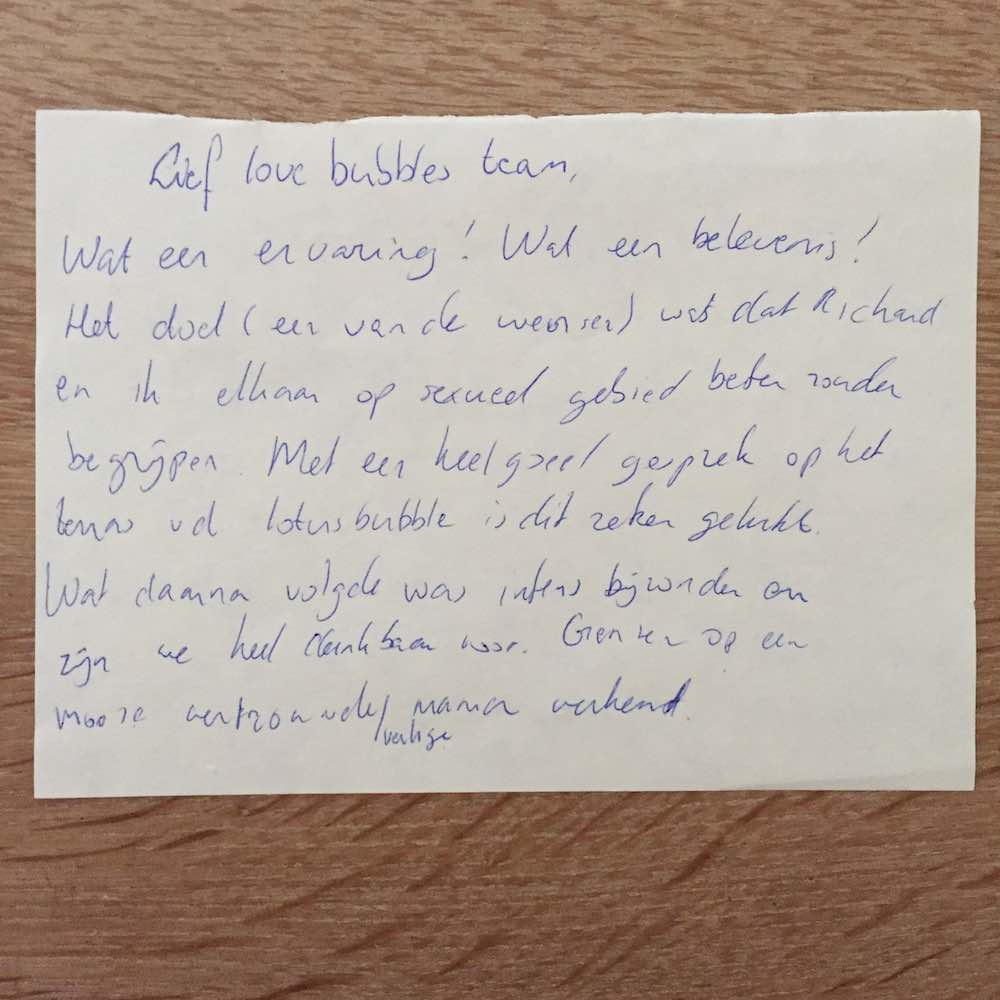 Lief love bubbles team,
Wat een ervaring! Wat een belevenis!
Het doel (een van de wensen) was dat Richard
en ik elkaar op sexueel gebied beter zouden
begrijpen. Met een heel goed gesprek op het
terras vd lotusbubble is dit zeker gelukt.
Wat daarna volgde was intens bijzonder en
zijn we heel dankbaar voor. Grenzen op een
mooie vertrouwde/ manier verkend.
veilige